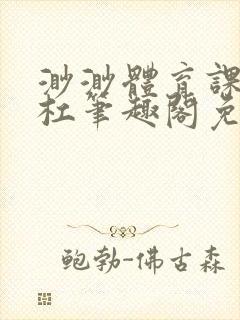 渺渺體育課
杜筆趣閣免
鲍勃-佛古森